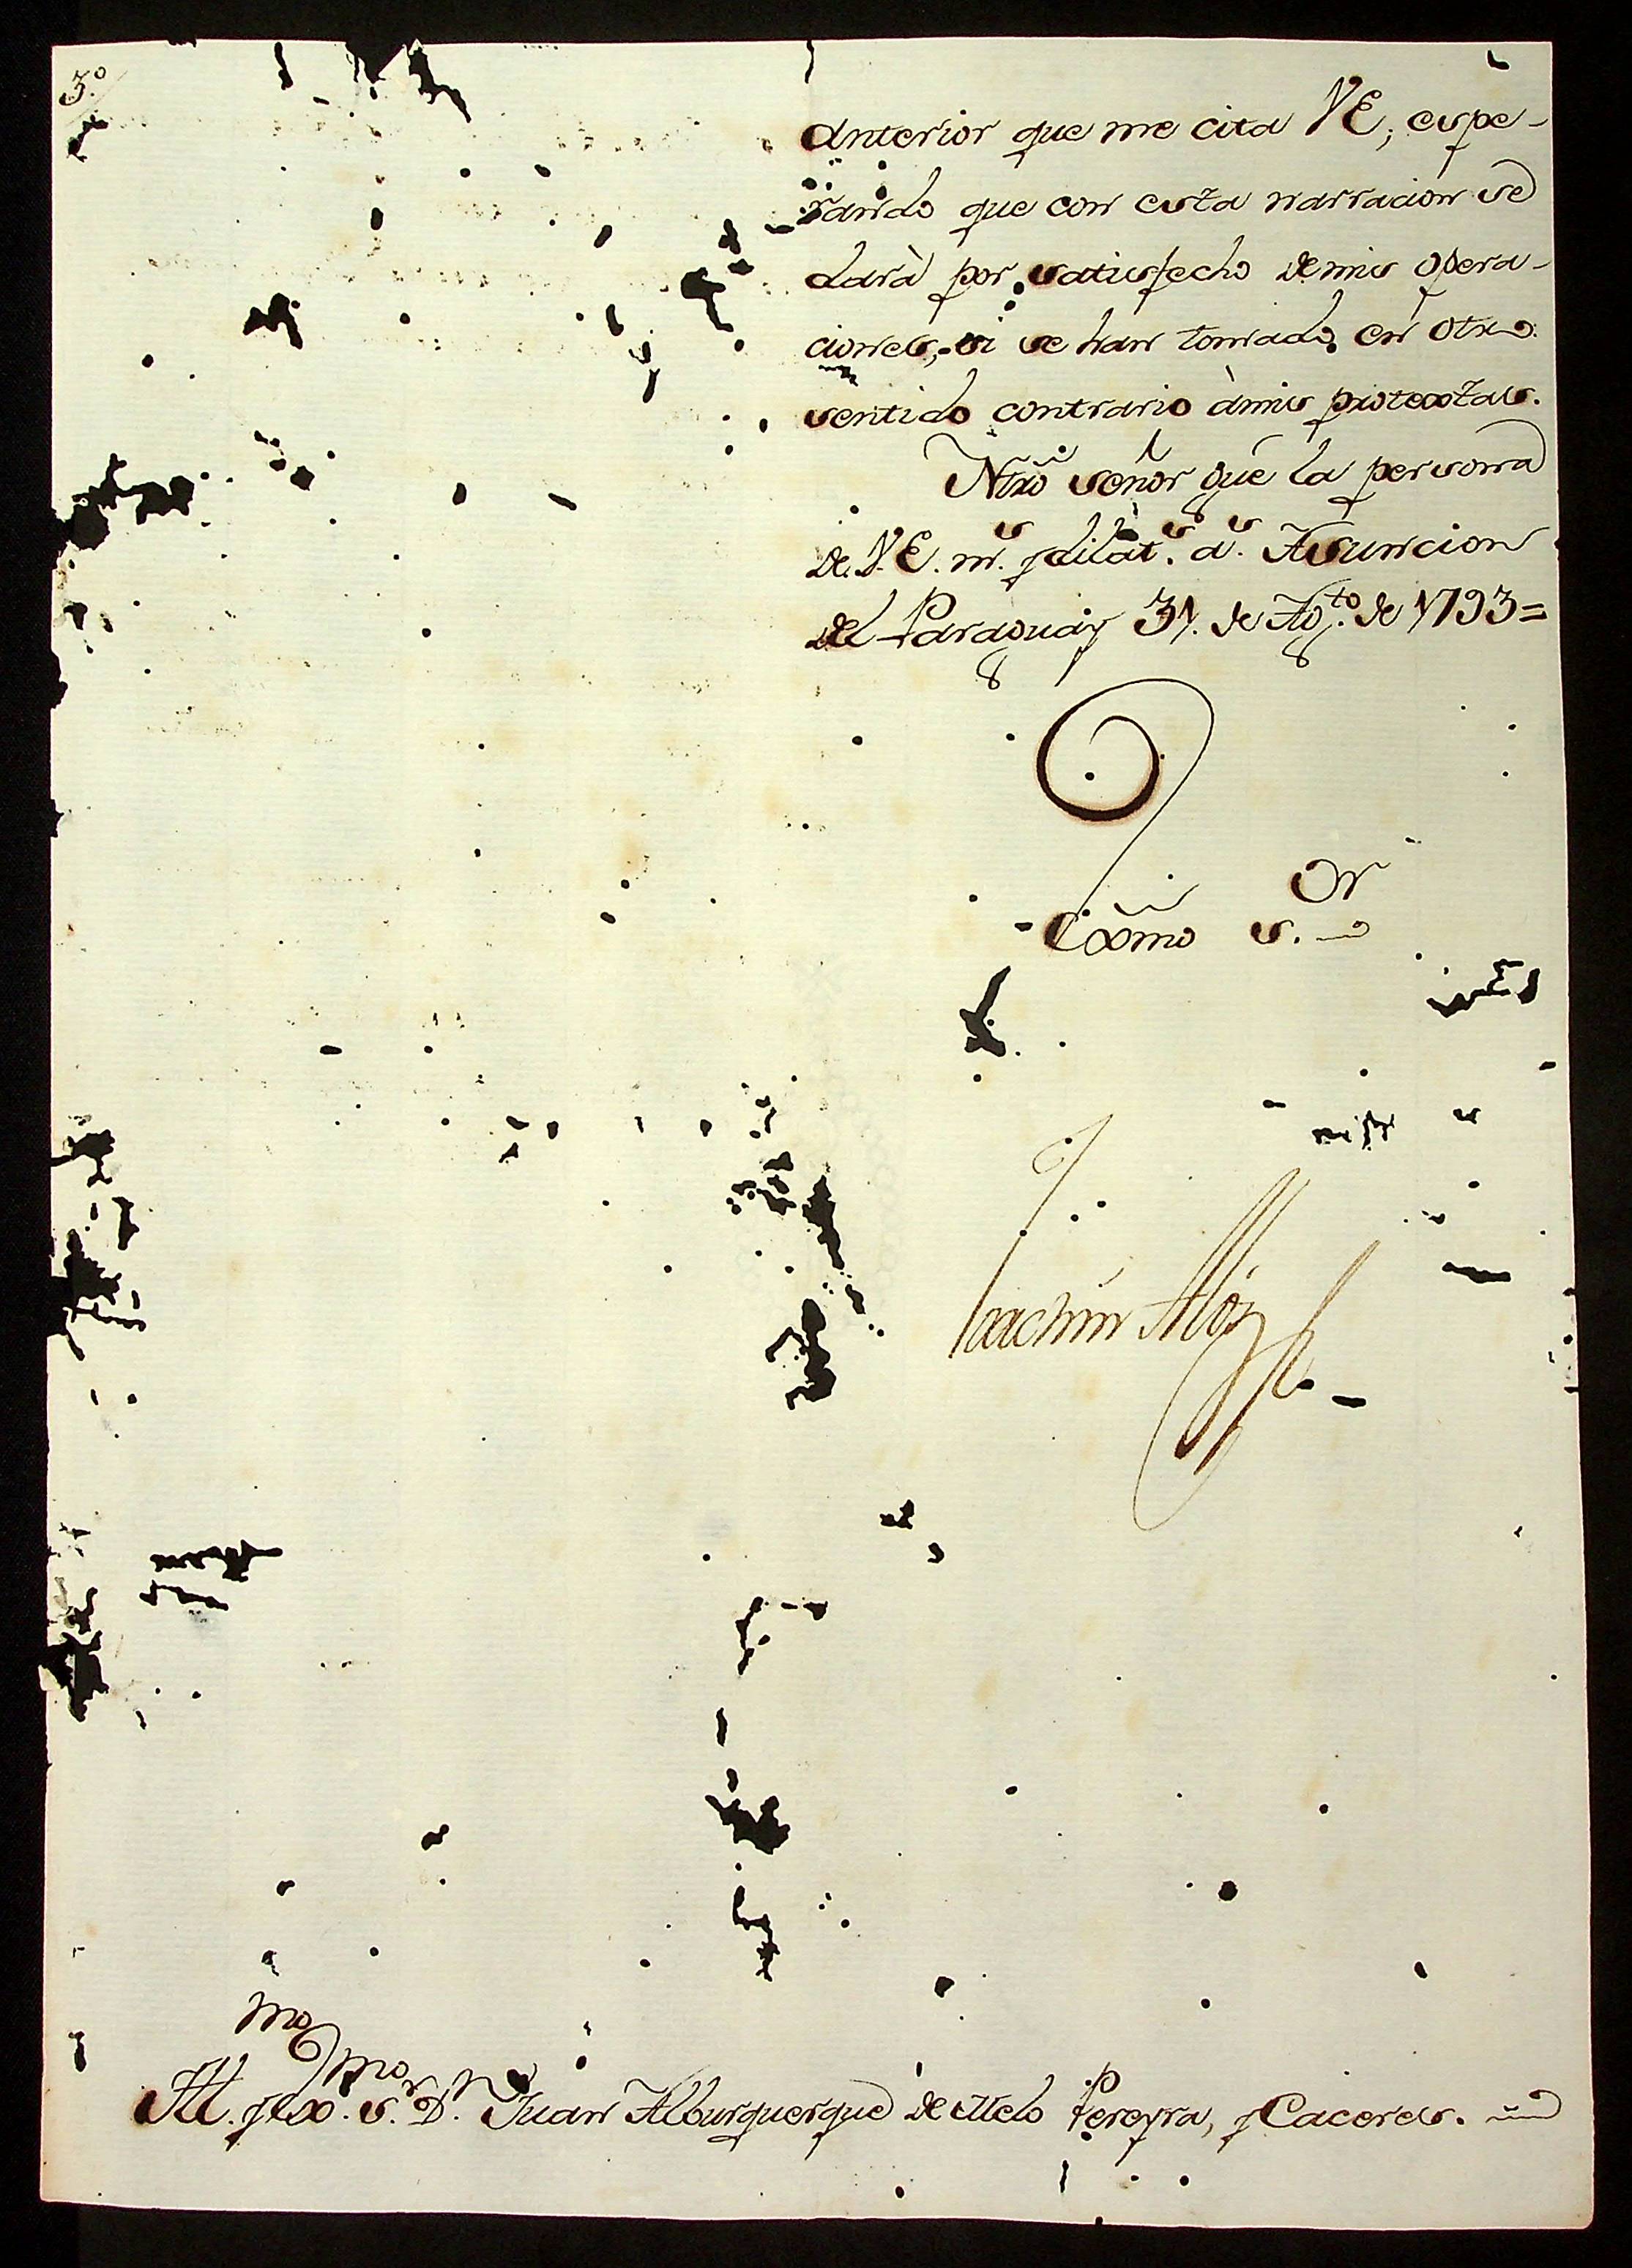 3.º
anterior que me cita VE, espe-
rando que con esta narracion se
dará por satisfecho de mis opera-
ciones, si se han tomado en otro
sentido contrario à mis protextas.
Ntrõ señor gũe la persona
de V.E. m.s y dilat.s a.s Asuncion
del Paraguay 31. de Ag.to de 1793=
Exmõ S.or
Joachin Alós
Ill.mo y Ex.mo S.or D.n Juan Alburquerque de Melo Pereyra, y Caceres.